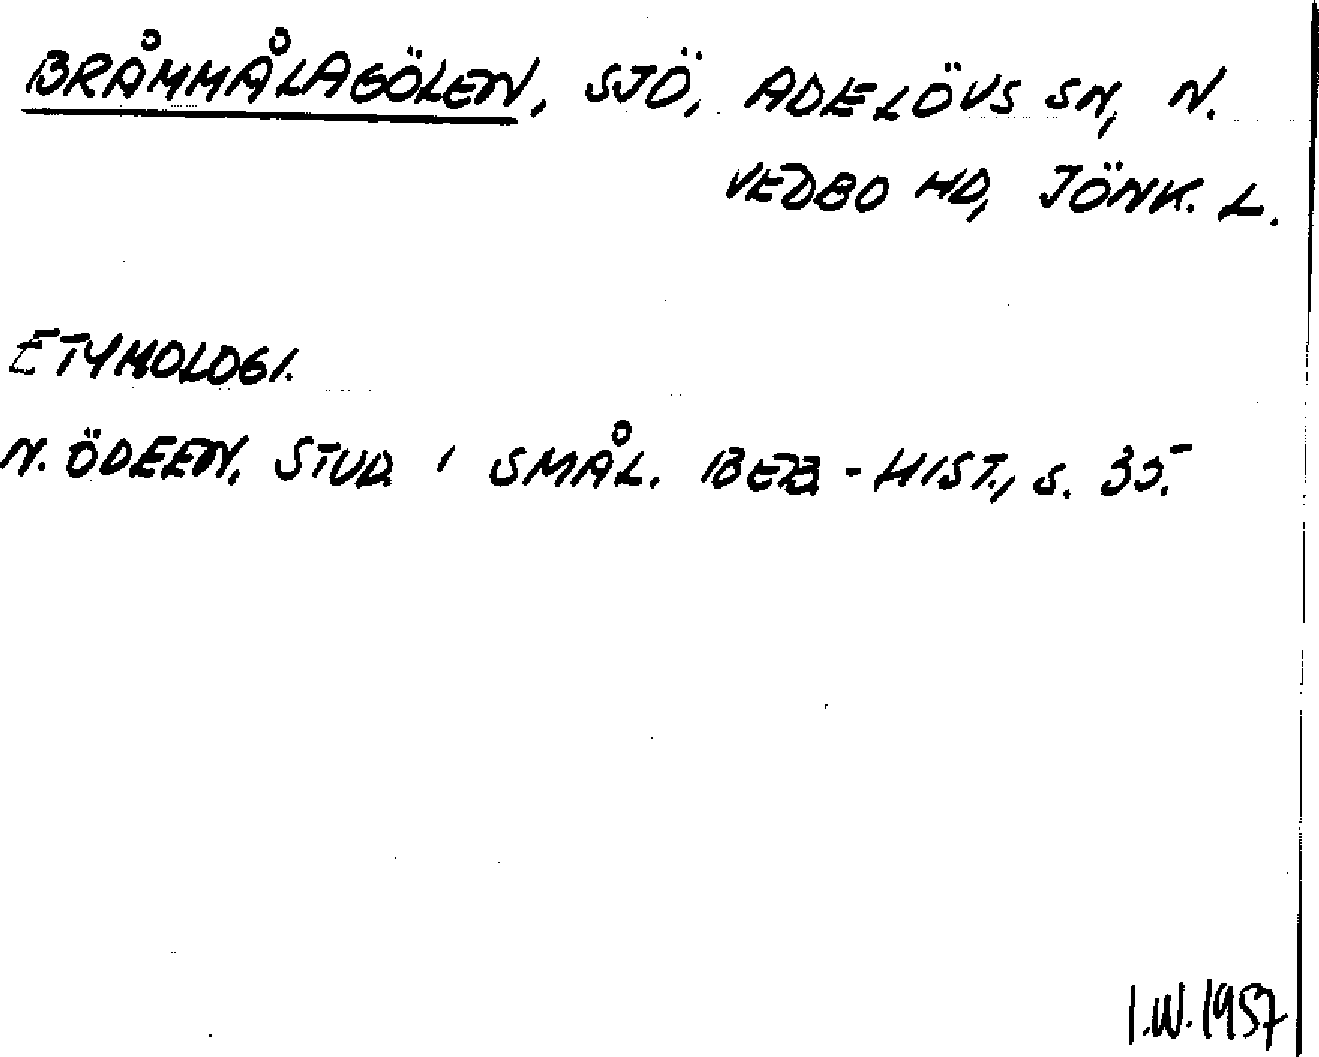 BRÅMMÅLAGÖLEN, SJÖ, ADELÖVS SN, N.
VEDBO HD, JÖNK. L.
ETYMOLOGI.
N. ÖDEEN, STUD. I SMÅL. BEB.-HIST., S. 35.
I.W. 1957